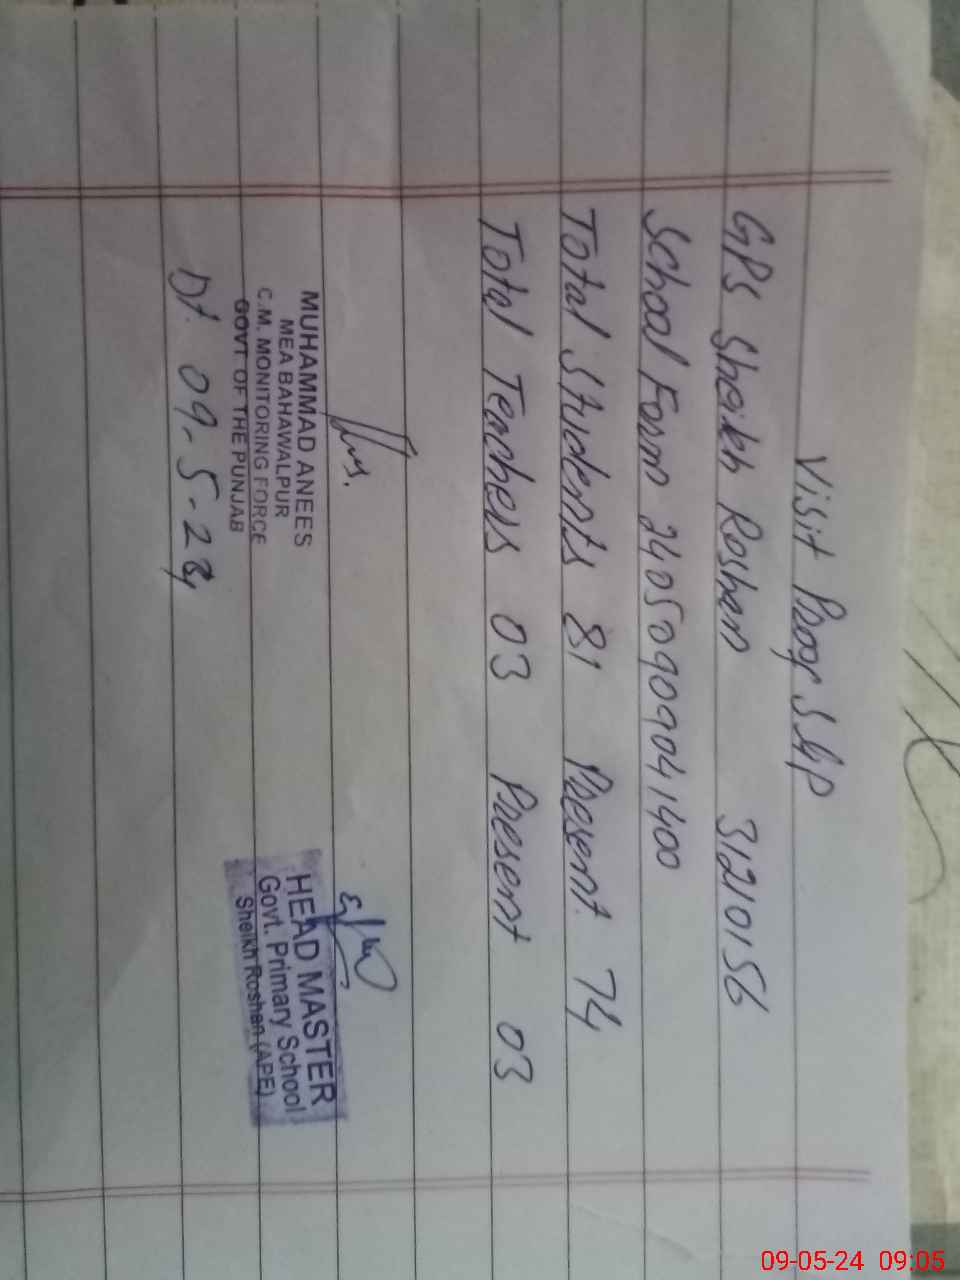 Visit Proof Slip
GPS Sheikh Roshan 31210156
School Form 24050909041400
Total Students 81 Present 74
Total Teachers 03 Present 03
MUHAMMAD ANEES
MEA BAHAWALPUR
C.M. MONITORING FORCE
GOVT OF THE PUNJAB
Dt. 09-5-24
HEAD MASTER
Govt. Primary School
Sheikh Roshan (APE)
09-05-24 09:05